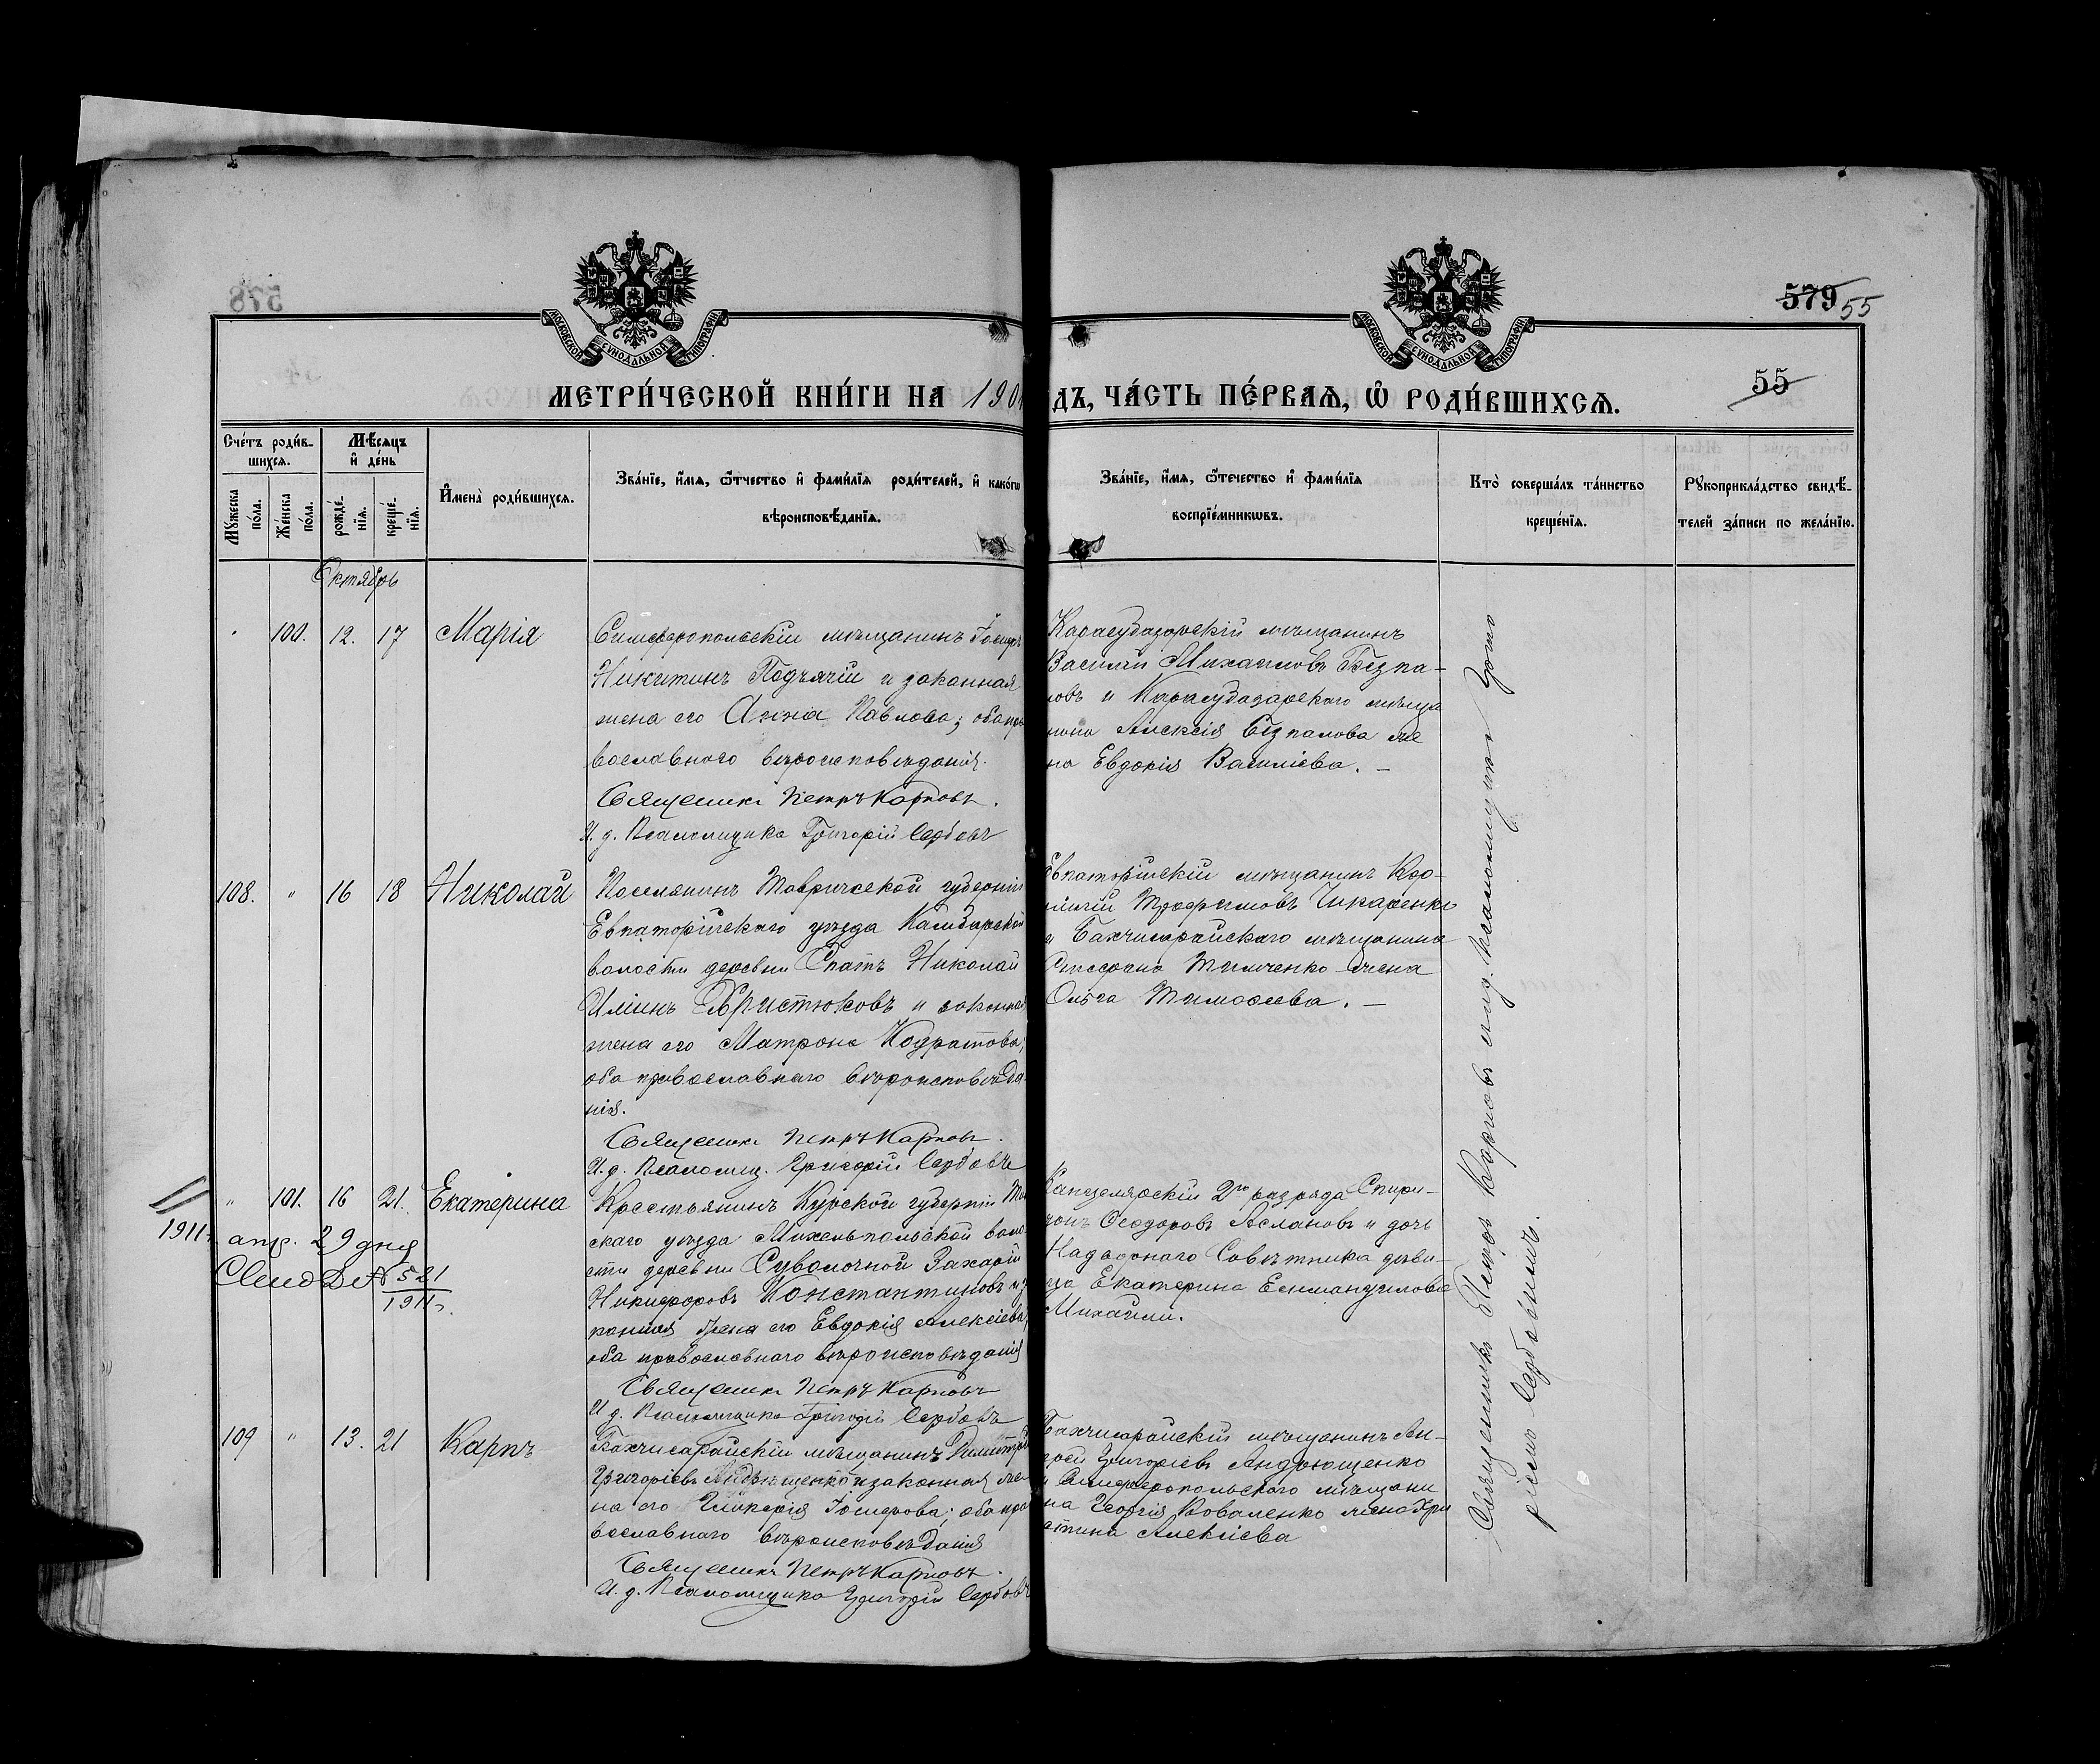 579 55
55
МОСКОВСКОЙ СУНОДАЛЬНОЙ ТИПОГРАФІИ
МОСКОВСКОЙ СУНОДАЛЬНОЙ ТИПОГРАФІИ
МЕТРИ́ЧЕСКОЙ КНИ́ГИ НА 190
ДЪ, ЧА́СТЬ ПЕ́РВАѦ, Ѡ РОДИ́ВШИХСѦ.
Сче́тъ роди́в-
шихсѧ.
Мѣсѧцъ
и҆ де́нь
Мꙋ́жеска
по́ла.
Же́нска
по́ла.
рожде́-
нїѧ.
креще́-
нїѧ.
И҆мена̀ роди́вшихсѧ.
Зва́нїе, и҆́мѧ, ѻ҆́тчество и҆ фами́лїѧ роди́телей, и҆ како́гѡ
вѣроисповѣ́данїѧ.
Зва́нїе, и҆́мѧ, ѻ҆те́чество и҆ фами́лїѧ
воспрїе́мникѡвъ.
Кто̀ соверша́лъ та́инство
креще́нїѧ.
Рꙋкоприкла́дство свидѣ́-
телей за́писи по жела́нїю.
Октябрь
100. 12. 17 Марія
Симферопольскій мѣщанинъ Іосифъ
Никитинъ Подъячій и законная
жена его Анна Павлова; оба пра
вославнаго вѣроисповѣданія.
Священникъ Петръ Карповъ.
И. д. Псаломщика Григорій Сербовъ
Карасубазарскій мѣщанинъ
Василій Михаиловъ Безпа-
ловъ и Карасубазарскаго мѣща
нина Алексія Безпалова же
на Евдокія Василіева. —
108. " 16 18 Николай
Поселянинъ Таврической губерніи
Евпаторійскаго уѣзда Камбарской
волости деревни Спатъ Николай
Иліинъ Христюковъ и законная
жена его Матрона Кодратова;
оба православнаго вѣроисповѣда-
нія.
Священникъ Петръ Карповъ.
И. д. Псаломщ. Григорій Сербовъ
Евпаторійскій мѣщанинъ
Трофимовъ Чикаренко
и Бахчисарайскаго мѣщанина
Тимченко жена
Ольга Тимоѳеева. —
" 101. 16 21. Екатерина
1911 г.
апр. 29 дня
№ 521
1911 г.
Крестьянинъ Курской губерніи
скаго уѣзда Михельпольской воло
сти деревни Суволочной Захарій
Никифоровъ Константиновъ и за
конная жена его Евдокія Алексіева,
оба православнаго вѣроисповѣданія
Священникъ Петръ Карповъ
И. д. Псаломщика Григорій Сербовъ
Канцелярскій 2го разряда Спири-
донъ Ѳеодоровъ Аслановъ и дочь
Надворнаго Совѣтника дѣви-
ца Екатерина
Михаили.
109 " 13. 21 Карпъ
Бахчисарайскій мѣщанинъ Димитрій
Григоріевъ Андрющенко и законная же
на его Гликерія Іосифова; оба пра
вославнаго вѣроисповѣданія
Священникъ Петръ Карповъ.
И. д. Псаломщика Григорій Сербовъ
Бахчисарайскій мѣщанинъ Ан-
дрей Григоріевъ Андрющенко
и Симферопольскаго мѣщани
на Георгія Коваленко жена Хри
стина Алексіева
Священникъ Петръ Карповъ съ и. д. псаломщика Григо
ріемъ Сербовымъ.